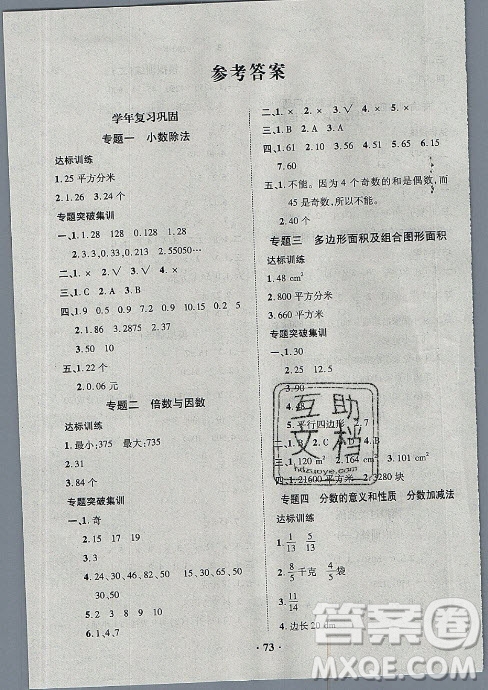 参考答案
学年复习巩固
专题一 小数除法
达标训练
1.25 平方分米
2.1.26 3.24 个
专题突破集训
一、1.1.28 128 0.128 1.28
2.3.3,0.33,0.213 2.55050…
二、1.× 2.√ 3.×
三、1.C 2.A 3.B
四、1.9 0.5 0.9 7.2 9.9 0.6
2.1.86 3.2875 2.96
3.50 10
五、1.2 个
2.0.06 元
专题二 倍数与因数
达标训练
1.最小:375 最大:735
2.31
3.84 个
专题突破集训
一、1.奇
2.15 17 19
3.9
4.20、24、30、42、50、54
20、24、30、42、50、54
20、30、50
5.2、17、2、29
6.1,4,7
二、1.× 2.× 3.√ 4.× 5.×
三、1.B 2.A 3.A
四、1.61 2.59 3.69 4.36 5.15
7.60
五、1.不能。因为 4 个奇数的和是偶数,而
45 是奇数,所以不能。
2.40 个
专题三 多边形面积及组合图形面积
达标训练
1.48 cm²
2.800 平方分米
3.660 平方米
专题突破集训
一、1.30
2.25 12.5
3.90
4.48
5.平行四边形 2.7
二、1.B 2.C
三、1.120 m² 2.164 cm² 3.12 m²
四、1.21600 平方米 2.3280 块
专题四 分数的意义和性质 分数加减法
达标训练
1. 1/13 5/13
2. 8/5 千克 4/5 袋
3. 11/14
4.边长 20 dm
· 73 ·
互助文档
hdzuoye.com
答案圈
MXQE.COM